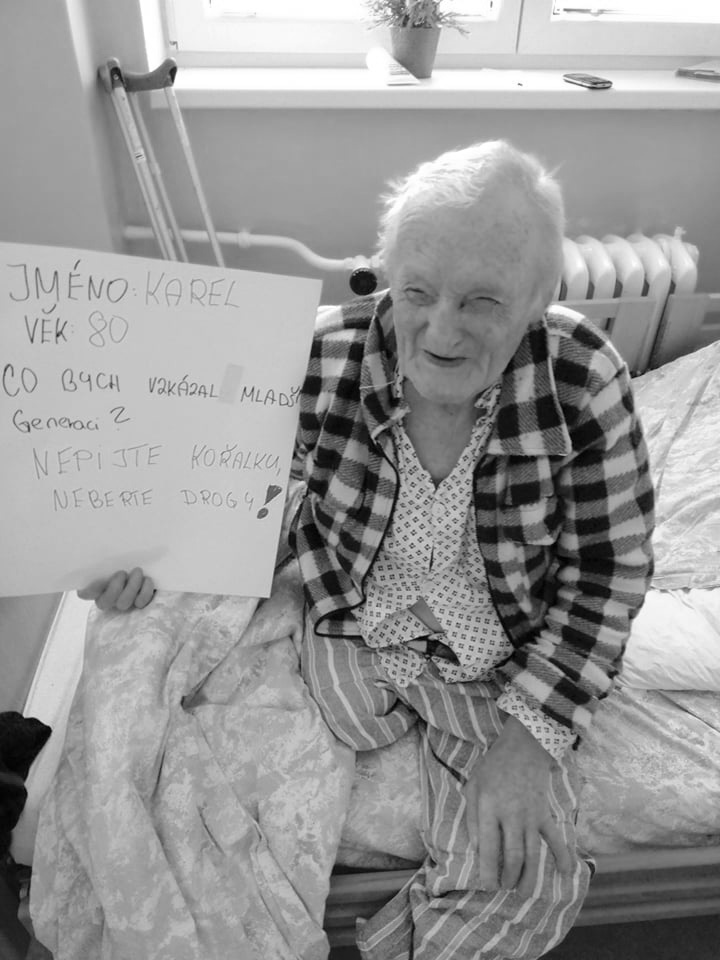 JMÉNO: KAREL
VĚK: 80
CO BYCH VZKÁZAL MLADŠÍ
Generaci?
NEPIJTE KOŘALKU,
NEBERTE DROGY!